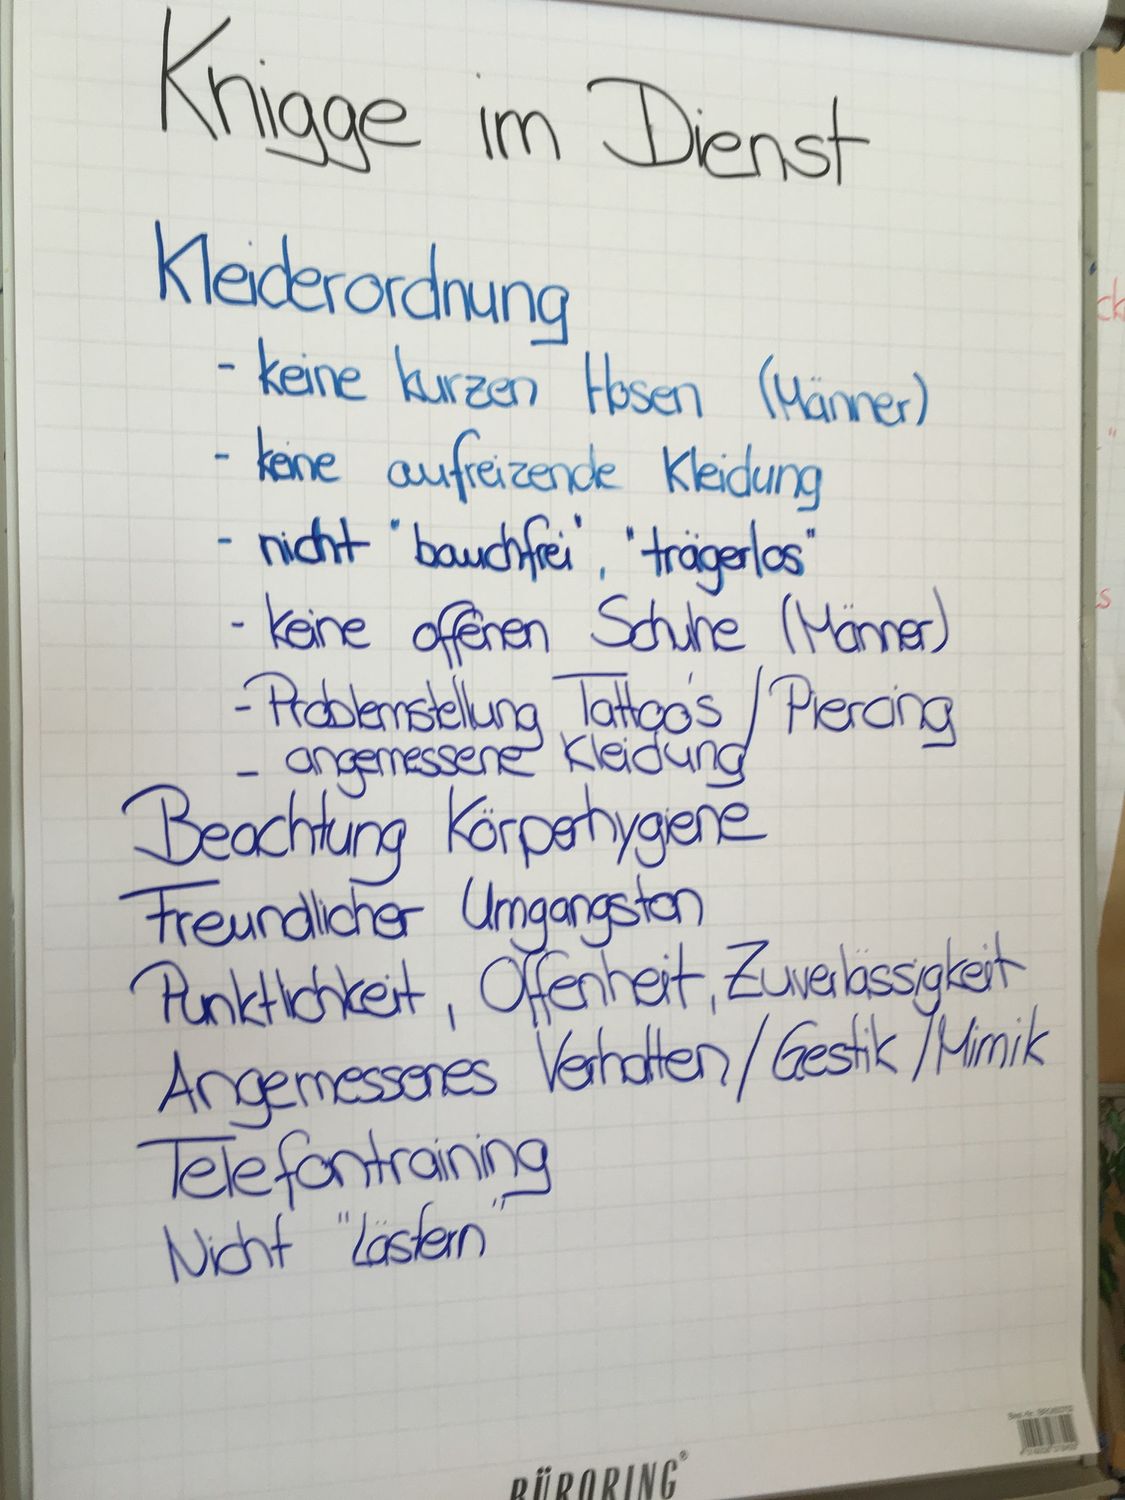 Knigge im Dienst
Kleiderordnung
- keine kurzen Hosen (Männer)
- keine aufreizende Kleidung
- nicht "bauchfrei", "trägerlos"
- keine offenen Schuhe (Männer)
- Problemstellung Tattoo's / Piercing
- angemessene Kleidung
Beachtung Körperhygiene
Freundlicher Umgangston
Pünktlichkeit, Offenheit, Zuverlässigkeit
Angemessenes Verhalten / Gestik / Mimik
Telefontraining
Nicht "Lästern"
BÜRORING®